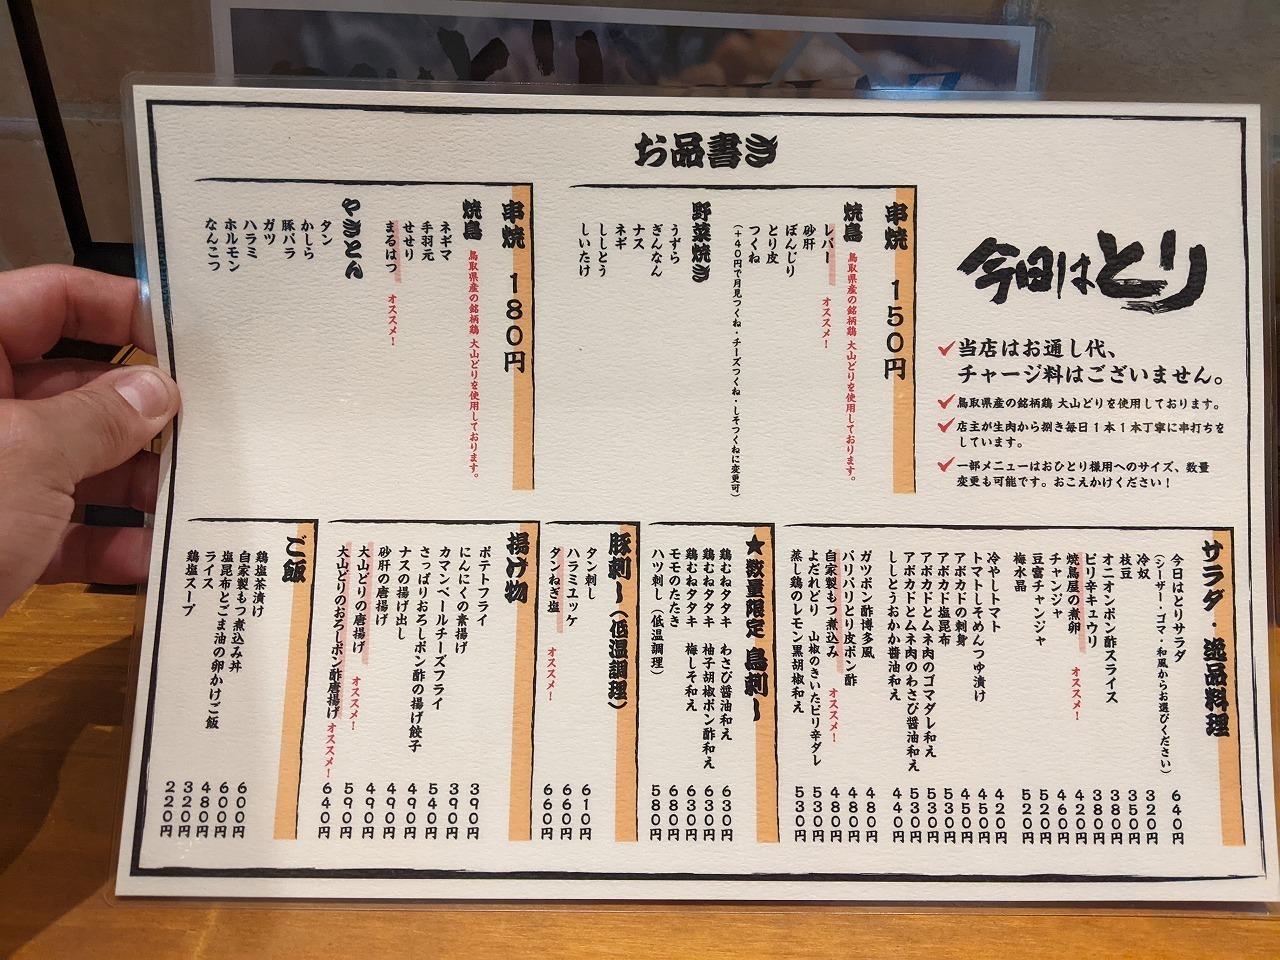 お品書き
今日はとり
当店はお通し代、
チャージ料はございません。
鳥取県産の銘柄鶏 大山どりを使用しております。
店主が生肉から捌き毎日1本1本丁寧に串打ちを
しています。
一部メニューはおひとり様用へのサイズ、数量
変更も可能です。おこえかけください！
串焼 150円
焼鳥 鳥取県産の銘柄鶏 大山どりを使用しております。
レバー オススメ！
砂肝
ぼんじり
とり皮
つくね
(+40円で月見つくね・チーズつくね・しそつくねに変更可)
野菜焼き
うずら
ぎんなん
ナス
ネギ
ししとう
しいたけ
串焼 180円
焼鳥 鳥取県産の銘柄鶏 大山どりを使用しております。
ネギマ
手羽元
せせり
まるはつ オススメ！
やきとん
タン
かしら
豚バラ
ガツ
ハラミ
ホルモン
なんこつ
サラダ・逸品料理
今日はとりサラダ 640円
(シーザー・ゴマ・和風からお選びください)
冷奴 320円
枝豆 350円
オニオンポン酢スライス 380円
ピリ辛キュウリ 380円
焼鳥屋の煮卵 オススメ！ 420円
チャンジャ 460円
豆富チャンジャ 520円
梅水晶 520円
冷やしトマト 420円
トマトしそめんつゆ漬け 450円
アボカドの刺身 450円
アボカド塩昆布 530円
アボカドとムネ肉のゴマダレ和え 530円
アボカドとムネ肉のわさび醤油和え 540円
ししとうおかか醤油和え 440円
ガツポン酢博多風 480円
バリバリとり皮ポン酢 480円
自家製もつ煮込み オススメ！ 480円
よだれどり 山椒のきいたピリ辛ダレ 530円
蒸し鶏のレモン黒胡椒和え 530円
★数量限定 鳥刺し
鶏むねタタキ わさび醤油和え 630円
鶏むねタタキ 柚子胡椒ポン酢和え 630円
鶏むねタタキ 梅しそ和え 630円
モモのたたき 680円
ハツ刺し(低温調理) 580円
豚刺し(低温調理)
タン刺し 610円
ハラミユッケ 660円
タンねぎ塩 オススメ！ 660円
揚げ物
ポテトフライ 390円
にんにくの素揚げ 390円
カマンベールチーズフライ 540円
さっぱりおろしポン酢の揚げ餃子 490円
ナスの揚げ出し 490円
砂肝の唐揚げ 490円
大山どりの唐揚げ オススメ！ 590円
大山どりのおろしポン酢唐揚げ オススメ！ 640円
ご飯
鶏塩茶漬け 600円
自家製もつ煮込み丼 600円
塩昆布とごま油の卵かけご飯 480円
ライス 320円
鶏塩スープ 220円